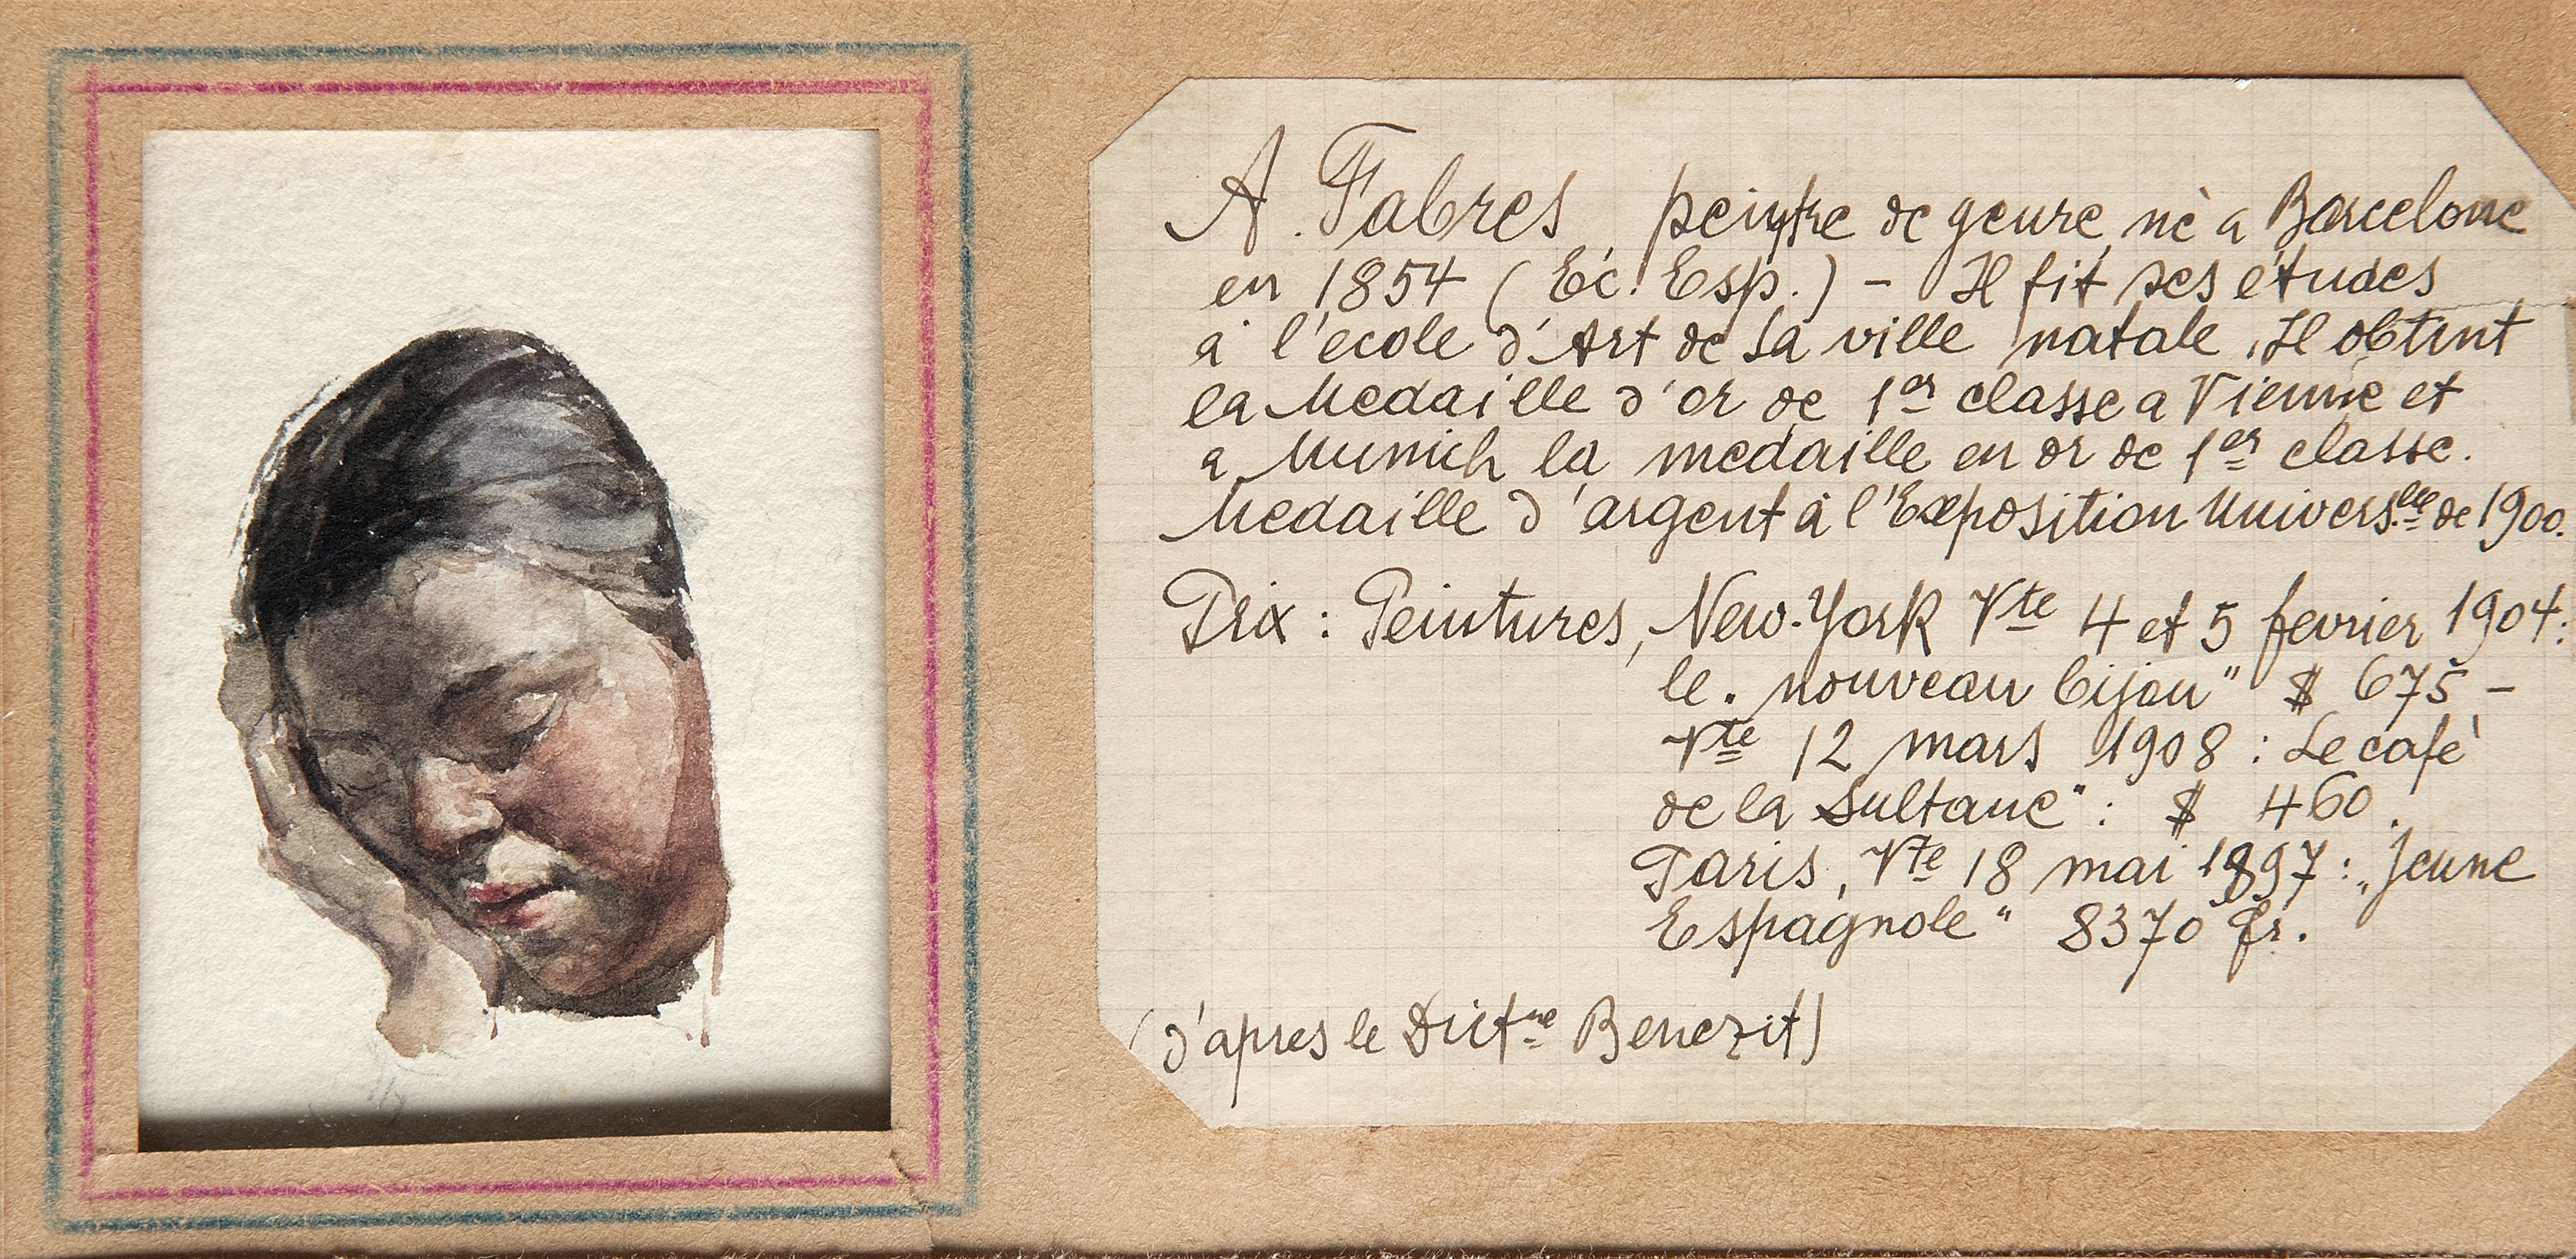 A. Fabres, peintre de genre, nè a Barcelone
en 1854 (Éc. Esp.) - Il fit ses études
à l'ecole d'Art de Sa ville natale. Il obtint
la Medaille d'or de 1er classe a Vienne et
a Munich la medaille en or de 1er classe.
Medaille d'argent à l'Exposition Univers.lle de 1900.
Prix : Peintures, New-York Vte 4 et 5 fevrier 1904:
le. nouveau bijou" $ 675 -
Vte 12 mars 1908 : Le cafè
de la Sultane" : $ 460.
Paris, Vte 18 mai 1897 : „Jeune
Espagnole" 8370 fr.
(d'apres le Dictne Benezit)